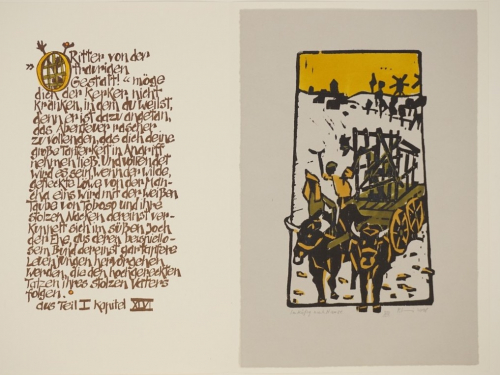 „O Ritter von der
traurigen
Gestalt!“ möge
dich der Kerker nicht
kränken, in dem du weilst,
denn er ist dazu angetan,
das Abenteuer rascher
zu vollenden, das dich deine
große Tapferkeit in Angriff
nehmen ließ. Und vollendet
wird es sein, wenn der wilde,
gefleckte Löwe von der Man-
cha eins wird mit der weißen
Taube von Toboso und ihre
stolzen Nacken dereinst ver-
knüpfelt sich im süßen Joch
der Ehe, aus deren beispiello-
sem Bund dereinst gar tapfere
Löwenjungen hervorgehen
werden, die den hochgereckten
Tatzen ihres stolzen Vaters
folgen.“
aus Teil I Kapitel XLVI